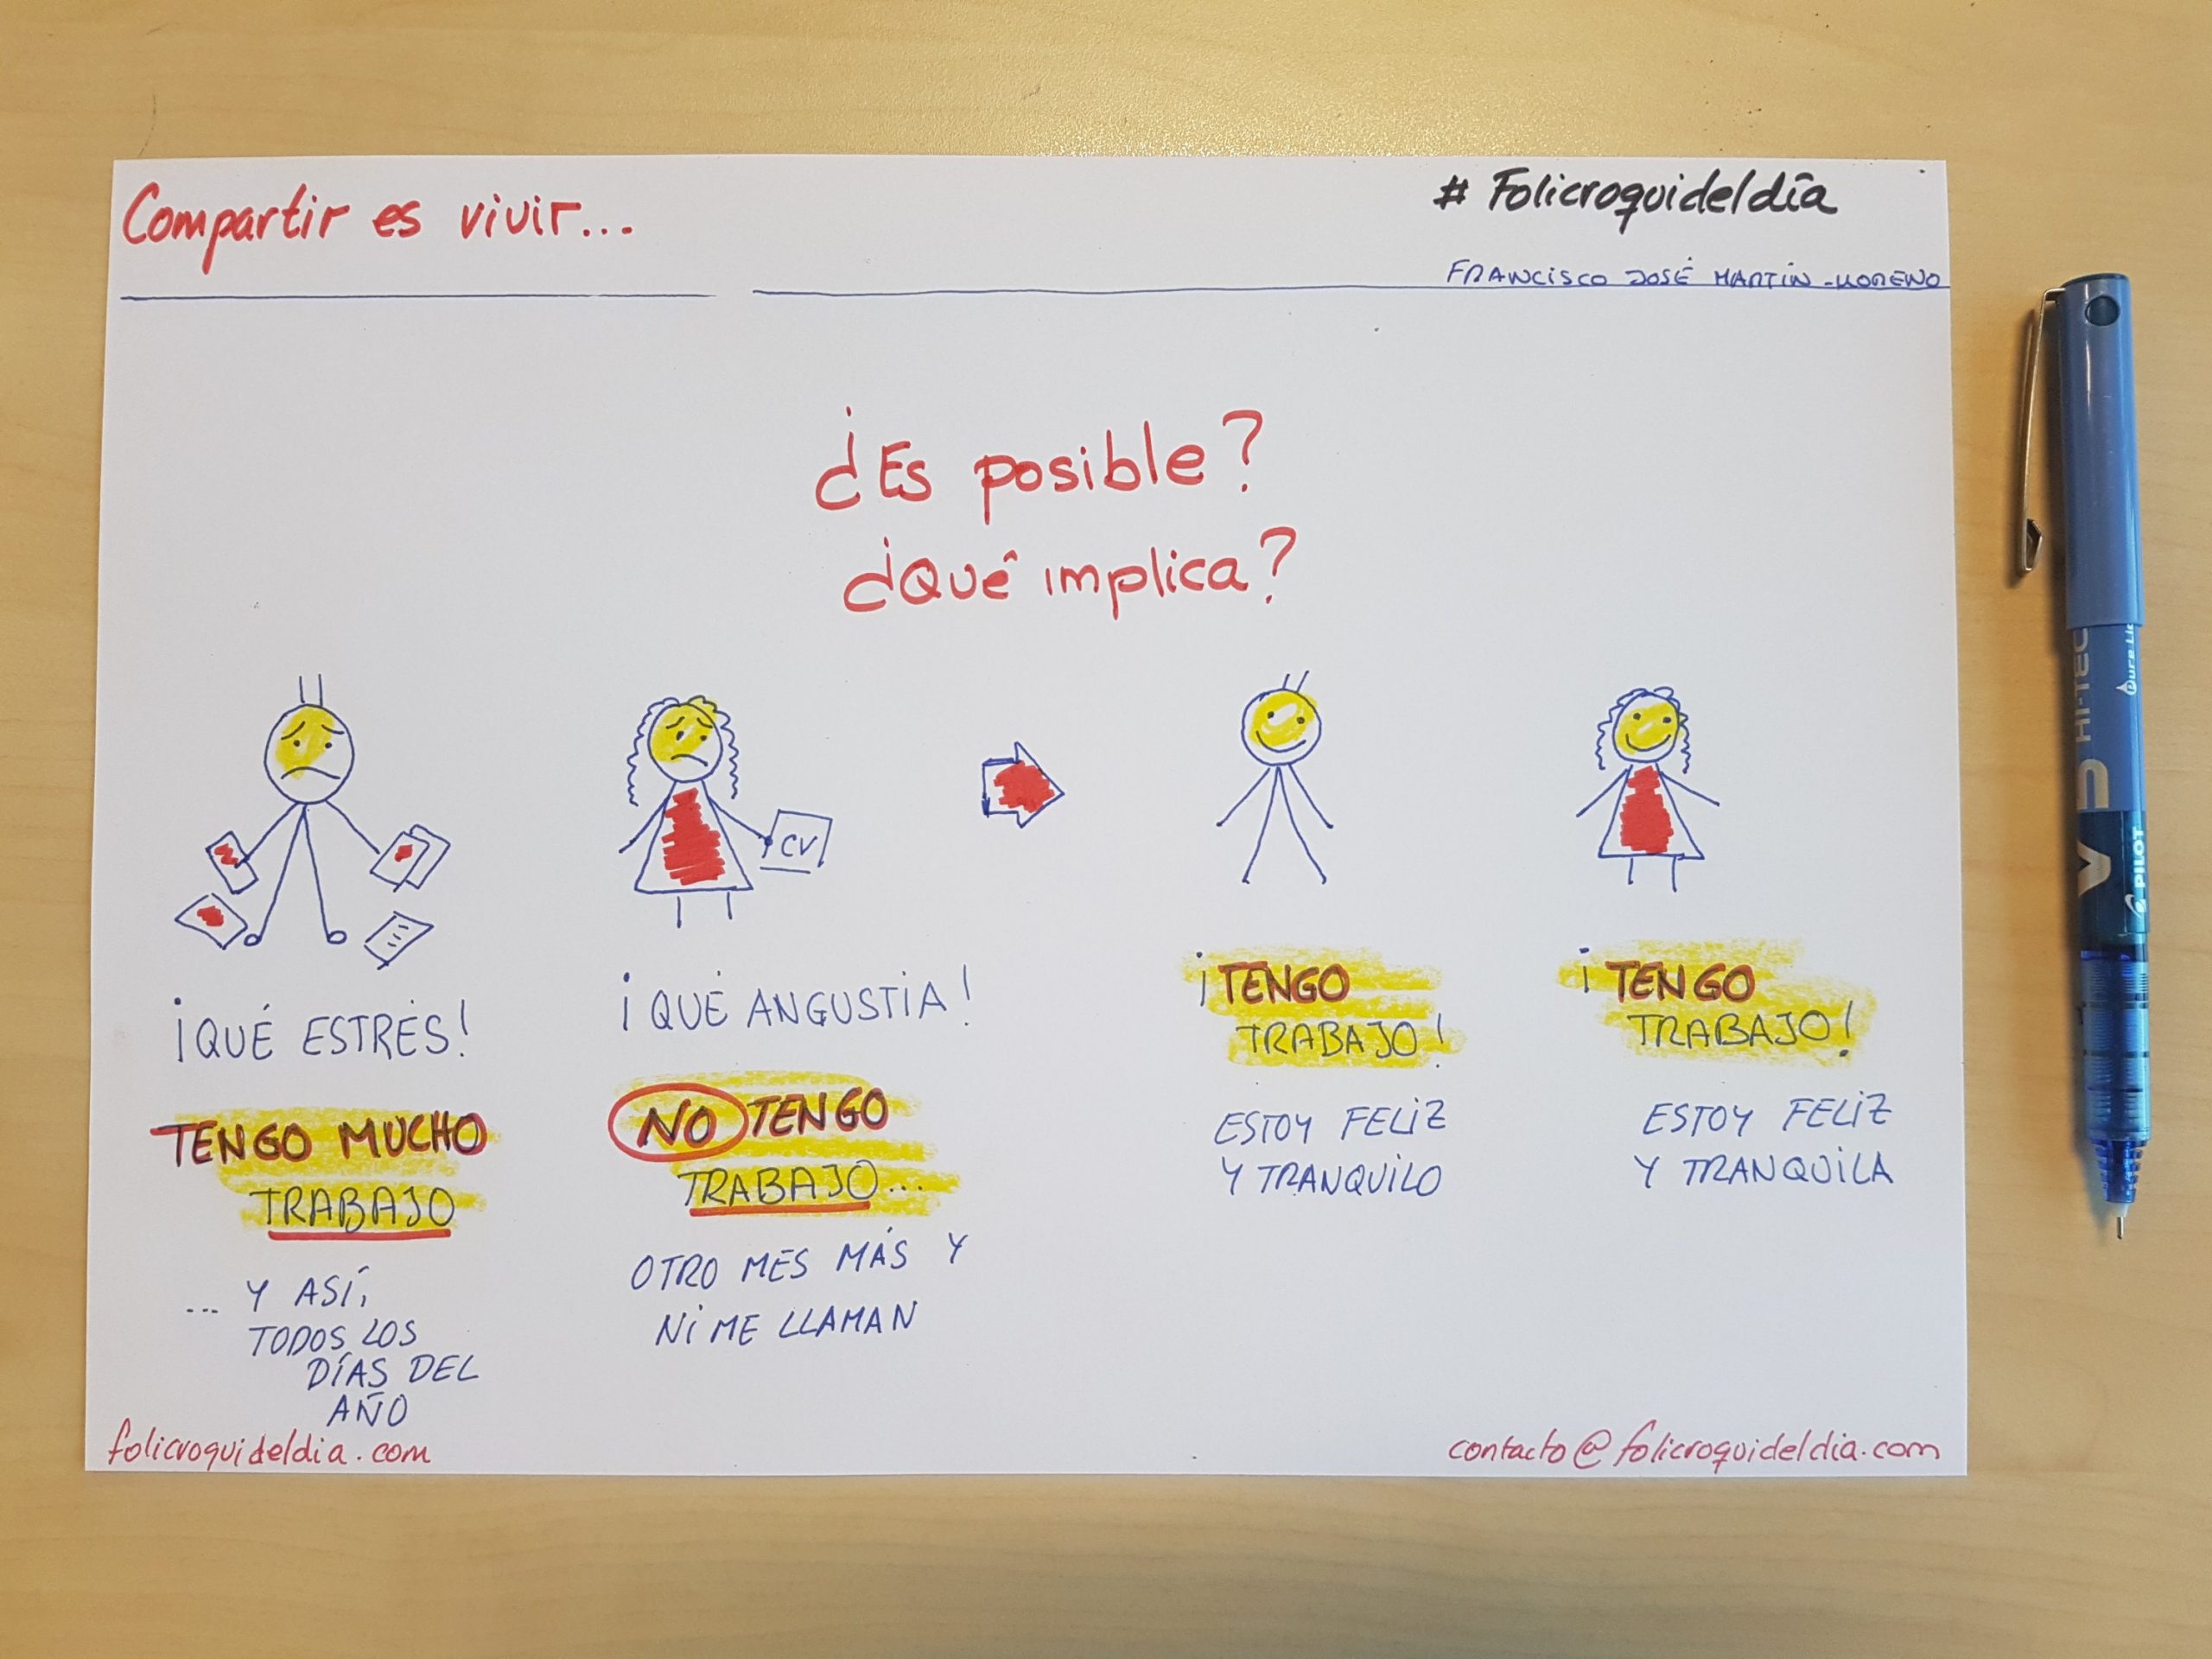 Compartir es vivir...
# Folicroquideldía
FRANCISCO JOSÉ MARTÍN-MORENO
¿Es posible?
¿Qué implica?
CV
¡QUÉ ESTRÉS!
TENGO MUCHO
TRABAJO
... Y ASÍ,
TODOS LOS
DÍAS DEL
AÑO
¡QUÉ ANGUSTIA!
NO TENGO
TRABAJO...
OTRO MES MÁS Y
NI ME LLAMAN
¡TENGO
TRABAJO!
ESTOY FELIZ
Y TRANQUILO
¡TENGO
TRABAJO!
ESTOY FELIZ
Y TRANQUILA
folicroquideldia.com
contacto@folicroquideldia.com
V5 HI-TEC
PILOT